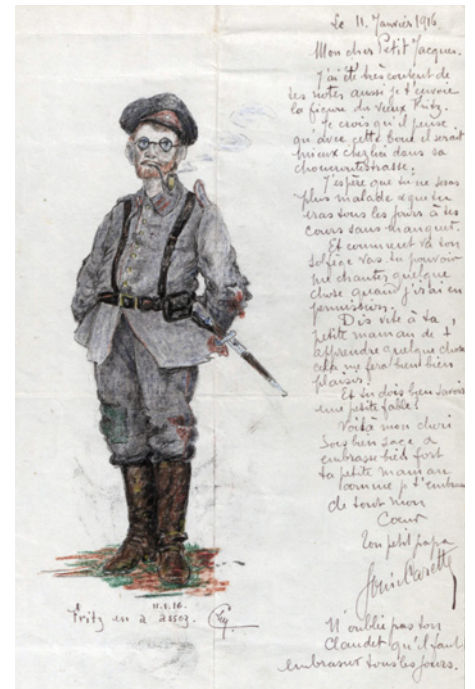 Le 11. Janvier 1916.
Mon cher Petit Jacques.
J'ai été très content de
tes notes aussi je t'envoie
la figure du vieux Fritz.
Je crois qu'il pense
qu'avec cette boue il serait
mieux chez lui dans sa
choucroutestrasse.
J'espère que tu ne seras
plus malade et que tu
iras tous les jours à tes
cours sans manquer.
Et comment va ton
solfège vas tu pouvoir
me chanter quelque
chose quand j'irai en
permission.
Dis vite à ta
petite maman de t
apprendre quelque chose
cela me fera bien
plaisir.
Et tu dois bien savoir
une petite fable!
Voilà mon chéri
Sois bien sage
embrasse bien fort
ta petite maman
comme je t'embrasse
de tout mon
Coeur
Ton petit papa
11.1.16.
Fritz en a assez.
N'oublie pas ton
Claudet qu'il faut
embrasser tous les jours.